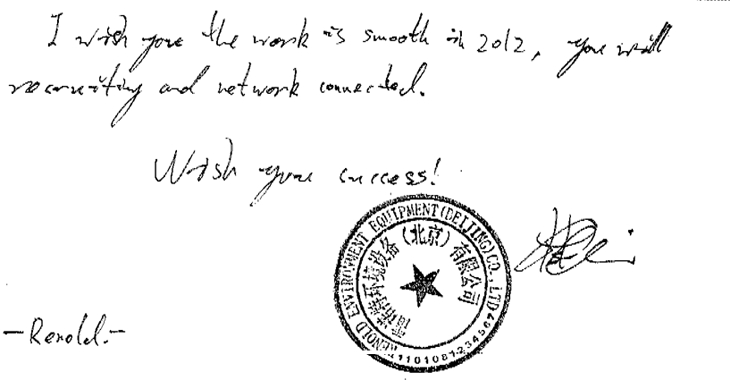 I wish you the work is smooth in 2012, you will
recruiting and network connected.
Wish you success!
RENOLD ENVIROVMENT EQUIPMENT(BEIJING)CO.,LTD
环境设备(北京)有限公司
1101081234567
—Renold.—